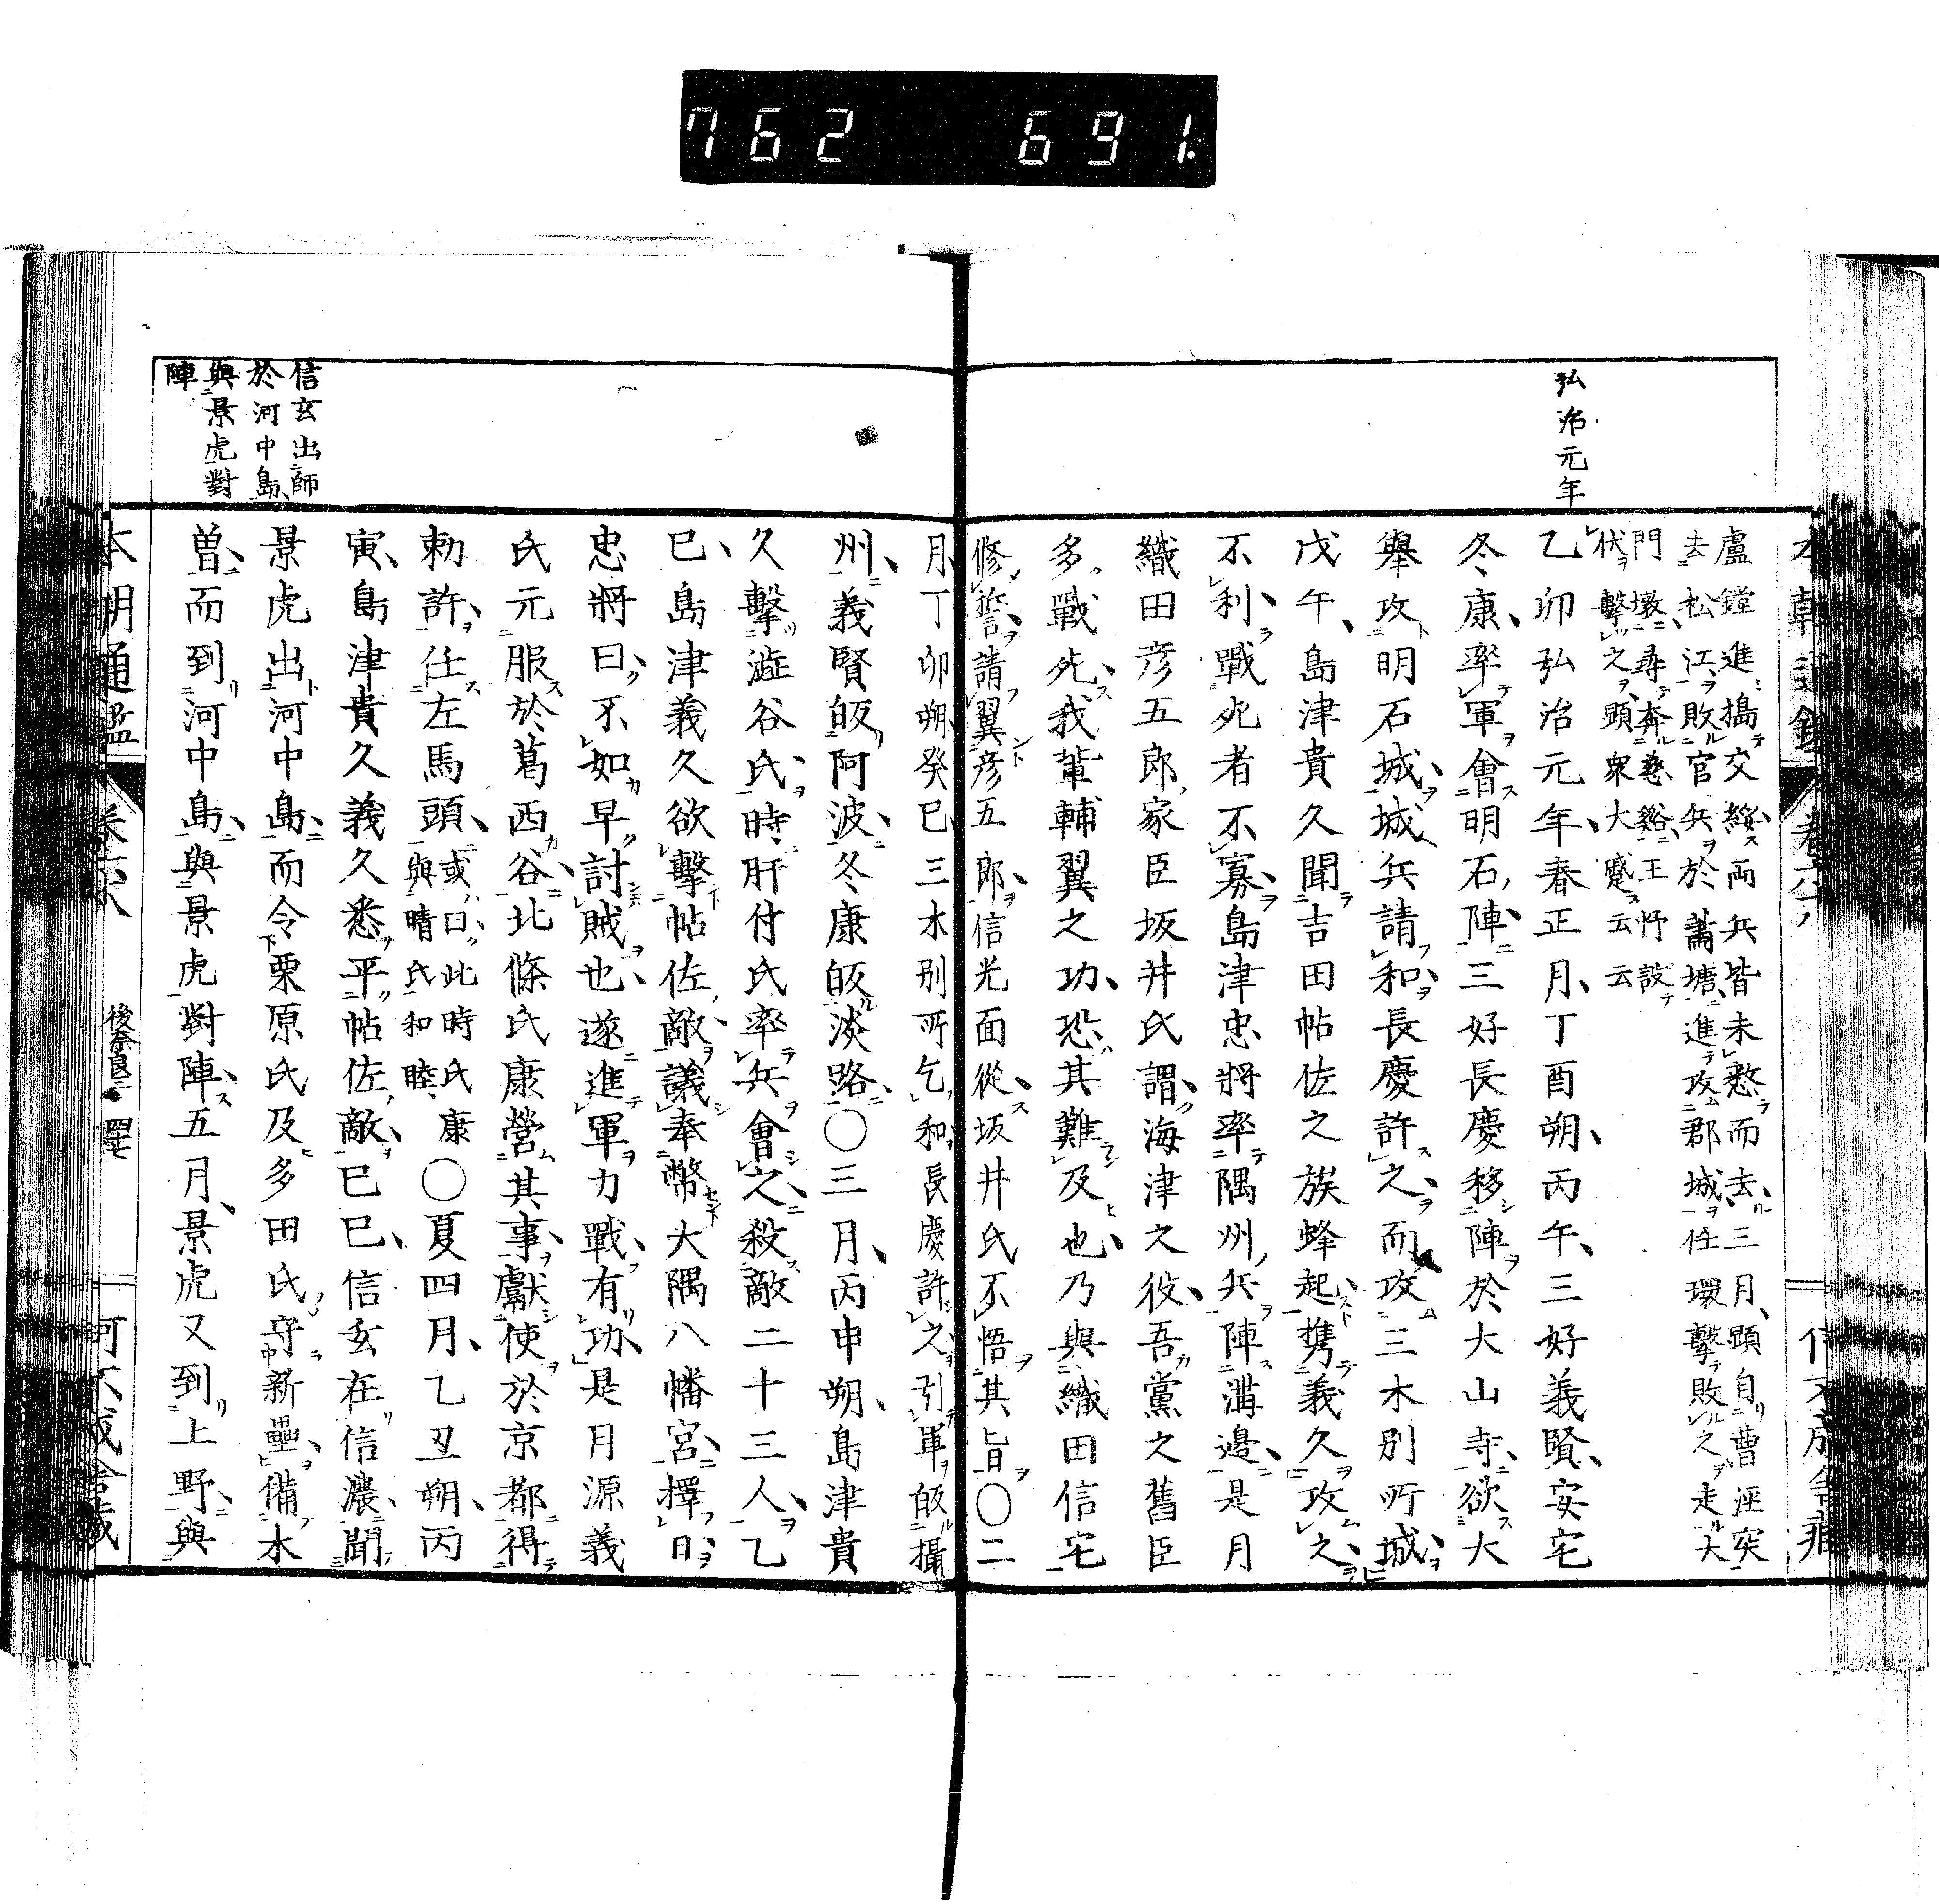 762 691.
弘治元年
盧鏜進搗交綏兩兵皆未憖而去三月顕自曹涇突
去松江敗官兵於蕭塘進攻郡城任環擊敗之走大
門墩尋奔慈谿王忬設
伏擊之顕衆大蹙云云
乙卯弘治元年春正月丁酉朔丙午三好義賢安宅
冬康率軍會明石陣三好長慶移陣於大山寺欲大
舉攻明石城城兵請和長慶許之而攻三木別所城
戊午島津貴久聞吉田帖佐之族蜂起携義久攻之
不利戰死者不寡島津忠將率隅州兵陣溝邊是月
織田彦五郎家臣坂井氏謂海津之彼吾黨之舊臣
多戰死我輩輔翼之功恐其難及也乃與織田信宅
修誓請翼彦五郎信光面從坂井氏不悟其旨〇二
月丁卯朔癸巳三木別所乞和長慶許之引軍皈攝
州義賢皈阿波冬康皈淡路〇三月丙申朔島津貴
久擊澁谷氏時肝付氏率兵會之殺敵二十三人乙
巳島津義久欲擊帖佐敵議奉幣大隅八幡宮擇日
忠將曰不如早討賊也遂進軍力戰有功是月源義
氏元服於葛西谷北條氏康營其事獻使於京都得
勅許任左馬頭或曰此時氏康與晴氏和睦〇夏四月乙丑朔丙
寅島津貴久義久悉平帖佐敵巳巳信玄在信濃聞
景虎出河中島而令栗原氏及多田氏守新壘備木
曽而到河中島與景虎對陣五月景虎又到上野與
信玄出師
於河中島
與景虎對
陣
本朝通鑑
後奈良二
四七